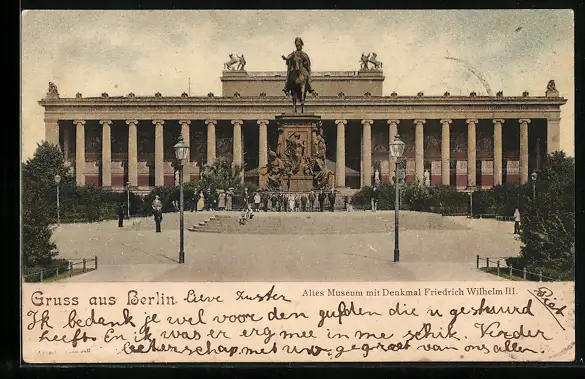 Gruss aus Berlin. Lieve Zuster
Altes Museum mit Denkmal Friedrich Wilhelm III.
Piet
Ik bedank je wel voor den gulden die u gestuurd
heeft En ik was er erg mee in me schik. Verder
beterschap met uw gegroet van ons allen.